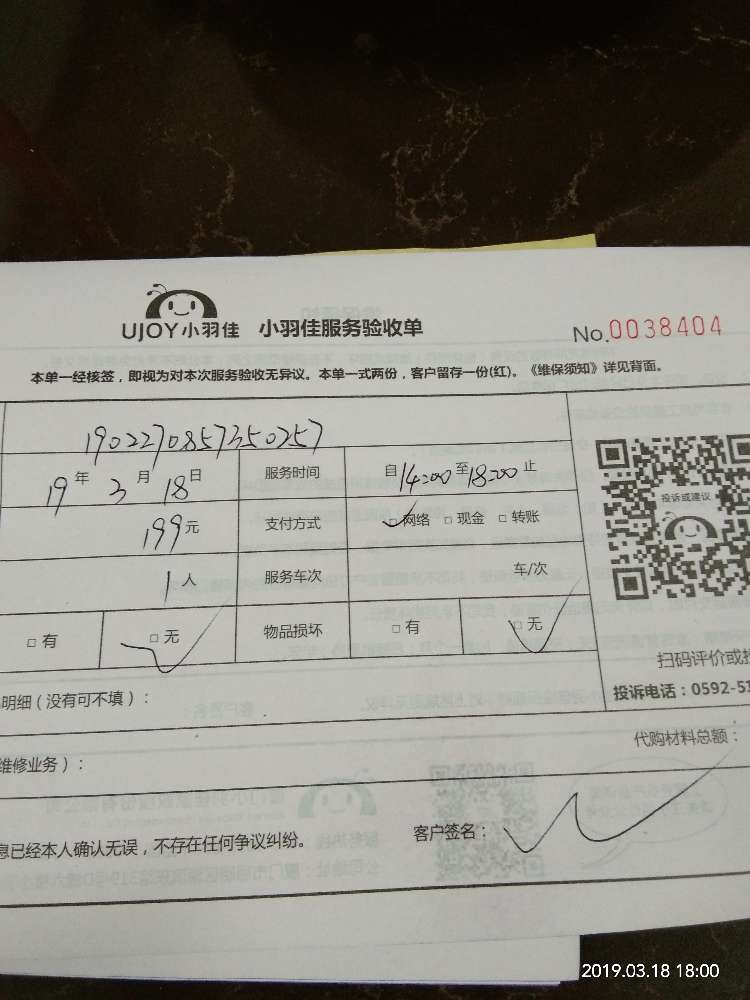 UJOY小羽佳 小羽佳服务验收单
No.0038404
本单一经核签，即视为对本次服务验收无异议。本单一式两份，客户留存一份(红)。《维保须知》详见背面。
1902270857350257
19年3月18日 服务时间 自14:00至18:00止
投诉或建议
199元 支付方式 □网络 □现金 □转账
1人 服务车次 车/次
□有 □无 物品损坏 □有 □无
扫码评价或
明细（没有可不填）：
投诉电话：0592-51
维修业务）：
代购材料总额：
息已经本人确认无误，不存在任何争议纠纷。 客户签名：
2019.03.18 18:00